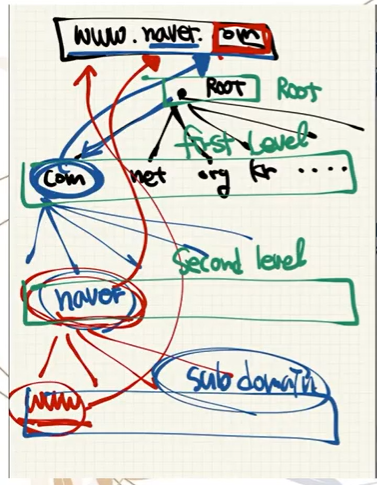 www.naver.com
Root Root
First Level
com net org kr ....
Second level
naver
sub domain
www